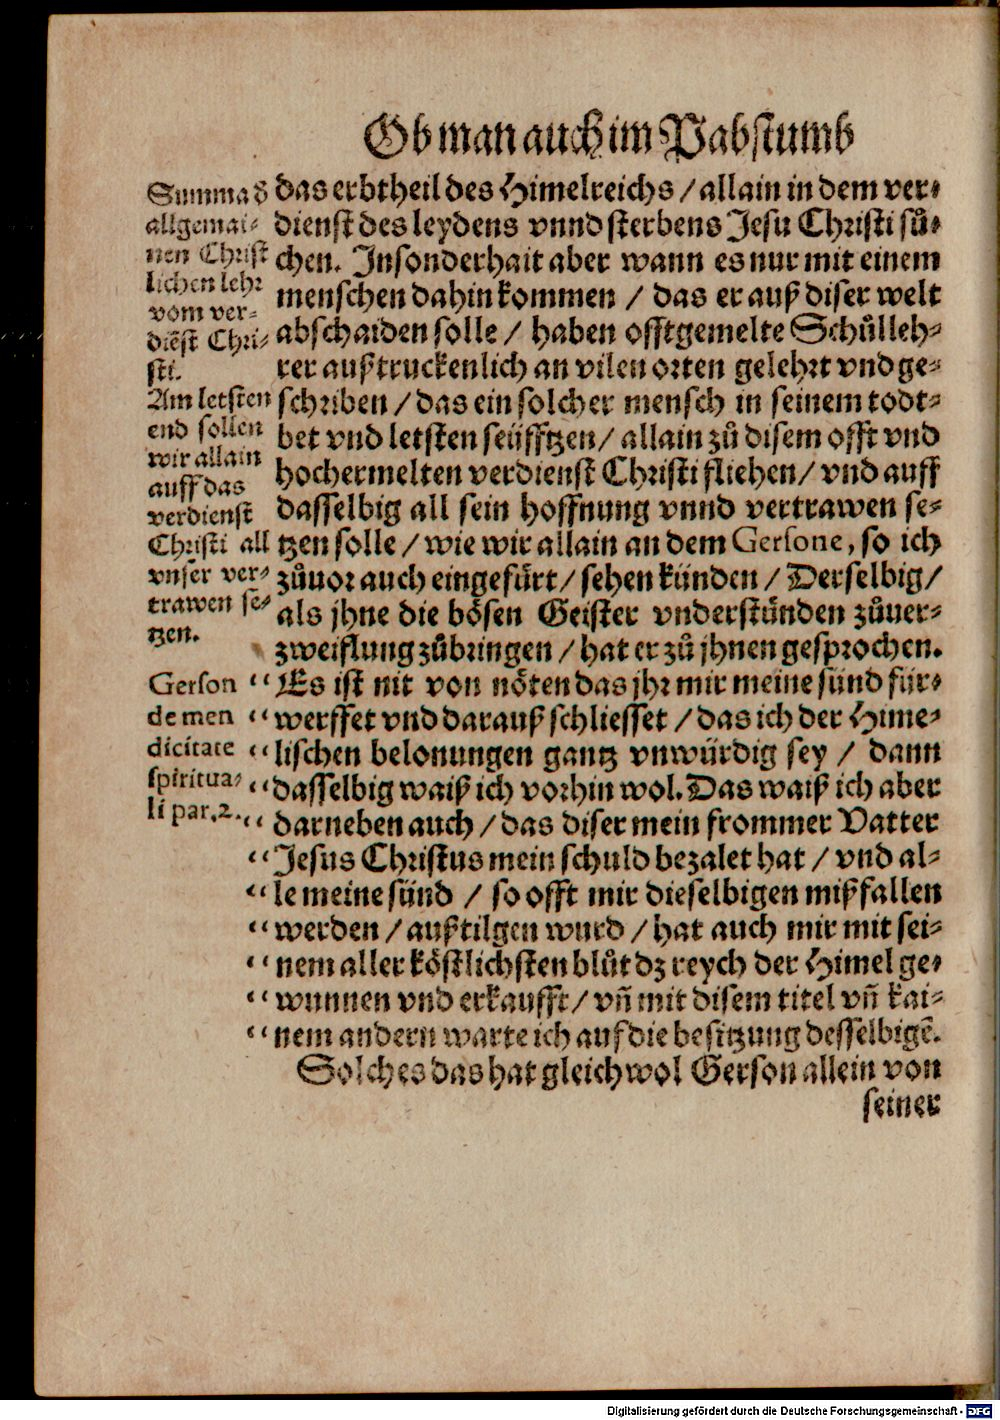 Ob man auch im Pabstumb
das erbtheil des Himelreichs / allain in dem ver-
dienst des leydens vnnd sterbens Jesu Christi sů-
chen. Insonderhait aber wann es nur mit einem
menschen dahin kommen / das er auß diser welt
abschaiden solle / haben offtgemelte Schůlleh-
rer außtruckenlich an vilen orten gelehrt vnd ge-
schriben / das ein solcher mensch in seinem todt-
bet vnd letsten seüfftzen / allain zů disem offt vnd
hochermelten verdienst Christi fliehen / vnd auff
dasselbig all sein hoffnung vnnd vertrawen se-
tzen solle / wie wir allain an dem Gersone, so ich
zůuor auch eingefürt / sehen künden / Derselbig /
als jhne die bösen Geister vnderstünden zůuer-
zweiflung zůbringen / hat er zů jhnen gesprochen.
“ Es ist nit von nöten das jhr mir meine sünd für-
“ werffet vnd darauß schliesset / das ich der Hime-
“ lischen belonungen gantz vnwürdig sey / dann
“ dasselbig waiß ich vorhin wol. Das waiß ich aber
“ darneben auch / das diser mein frommer Vatter
“ Jesus Christus mein schuld bezalet hat / vnd al-
“ le meine sünd / so offt mir dieselbigen mißfallen
“ werden / außtilgen wurd / hat auch mir mit sei-
“ nem aller köstlichsten blůt dz reych der Himel ge-
“ wunnen vnd erkaufft / vñ mit disem titel vñ kai-
“ nem andern warte ich auf die besitzung desselbigẽ.
Solches das hat gleichwol Gerson allein von
seiner
Summa d
allgemai-
nen Christ
lichen lehr
vom ver-
diẽst Chri-
sti.
Am letsten
end sollen
wir allain
auff das
verdienst
Christi all
vnser ver-
trawen se-
tzen.
Gerson
de men
dicitate
spiritua-
li par. 2.
Digitalisierung gefördert durch die Deutsche Forschungsgemeinschaft - DFG